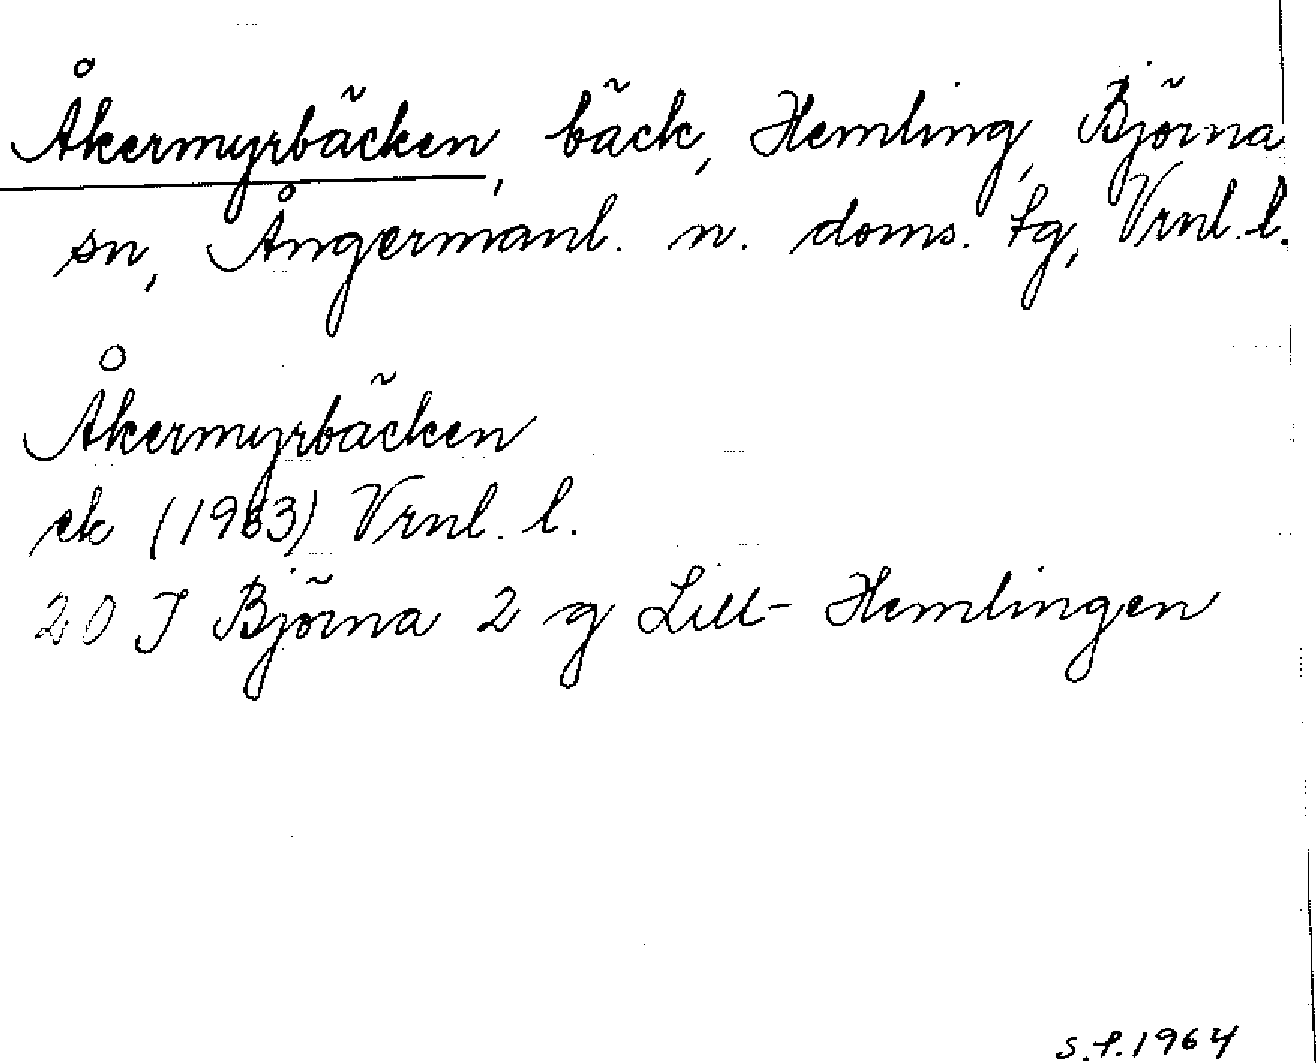 Åkermyrbäcken, bäck, Hemling, Björna
sn, Ångermanl. n. doms. tg, Vrnl. l.
Åkermyrbäcken
ek (1963) Vrnl. l.
20 J Björna 2 g Lill-Hemlingen
S.f. 1964